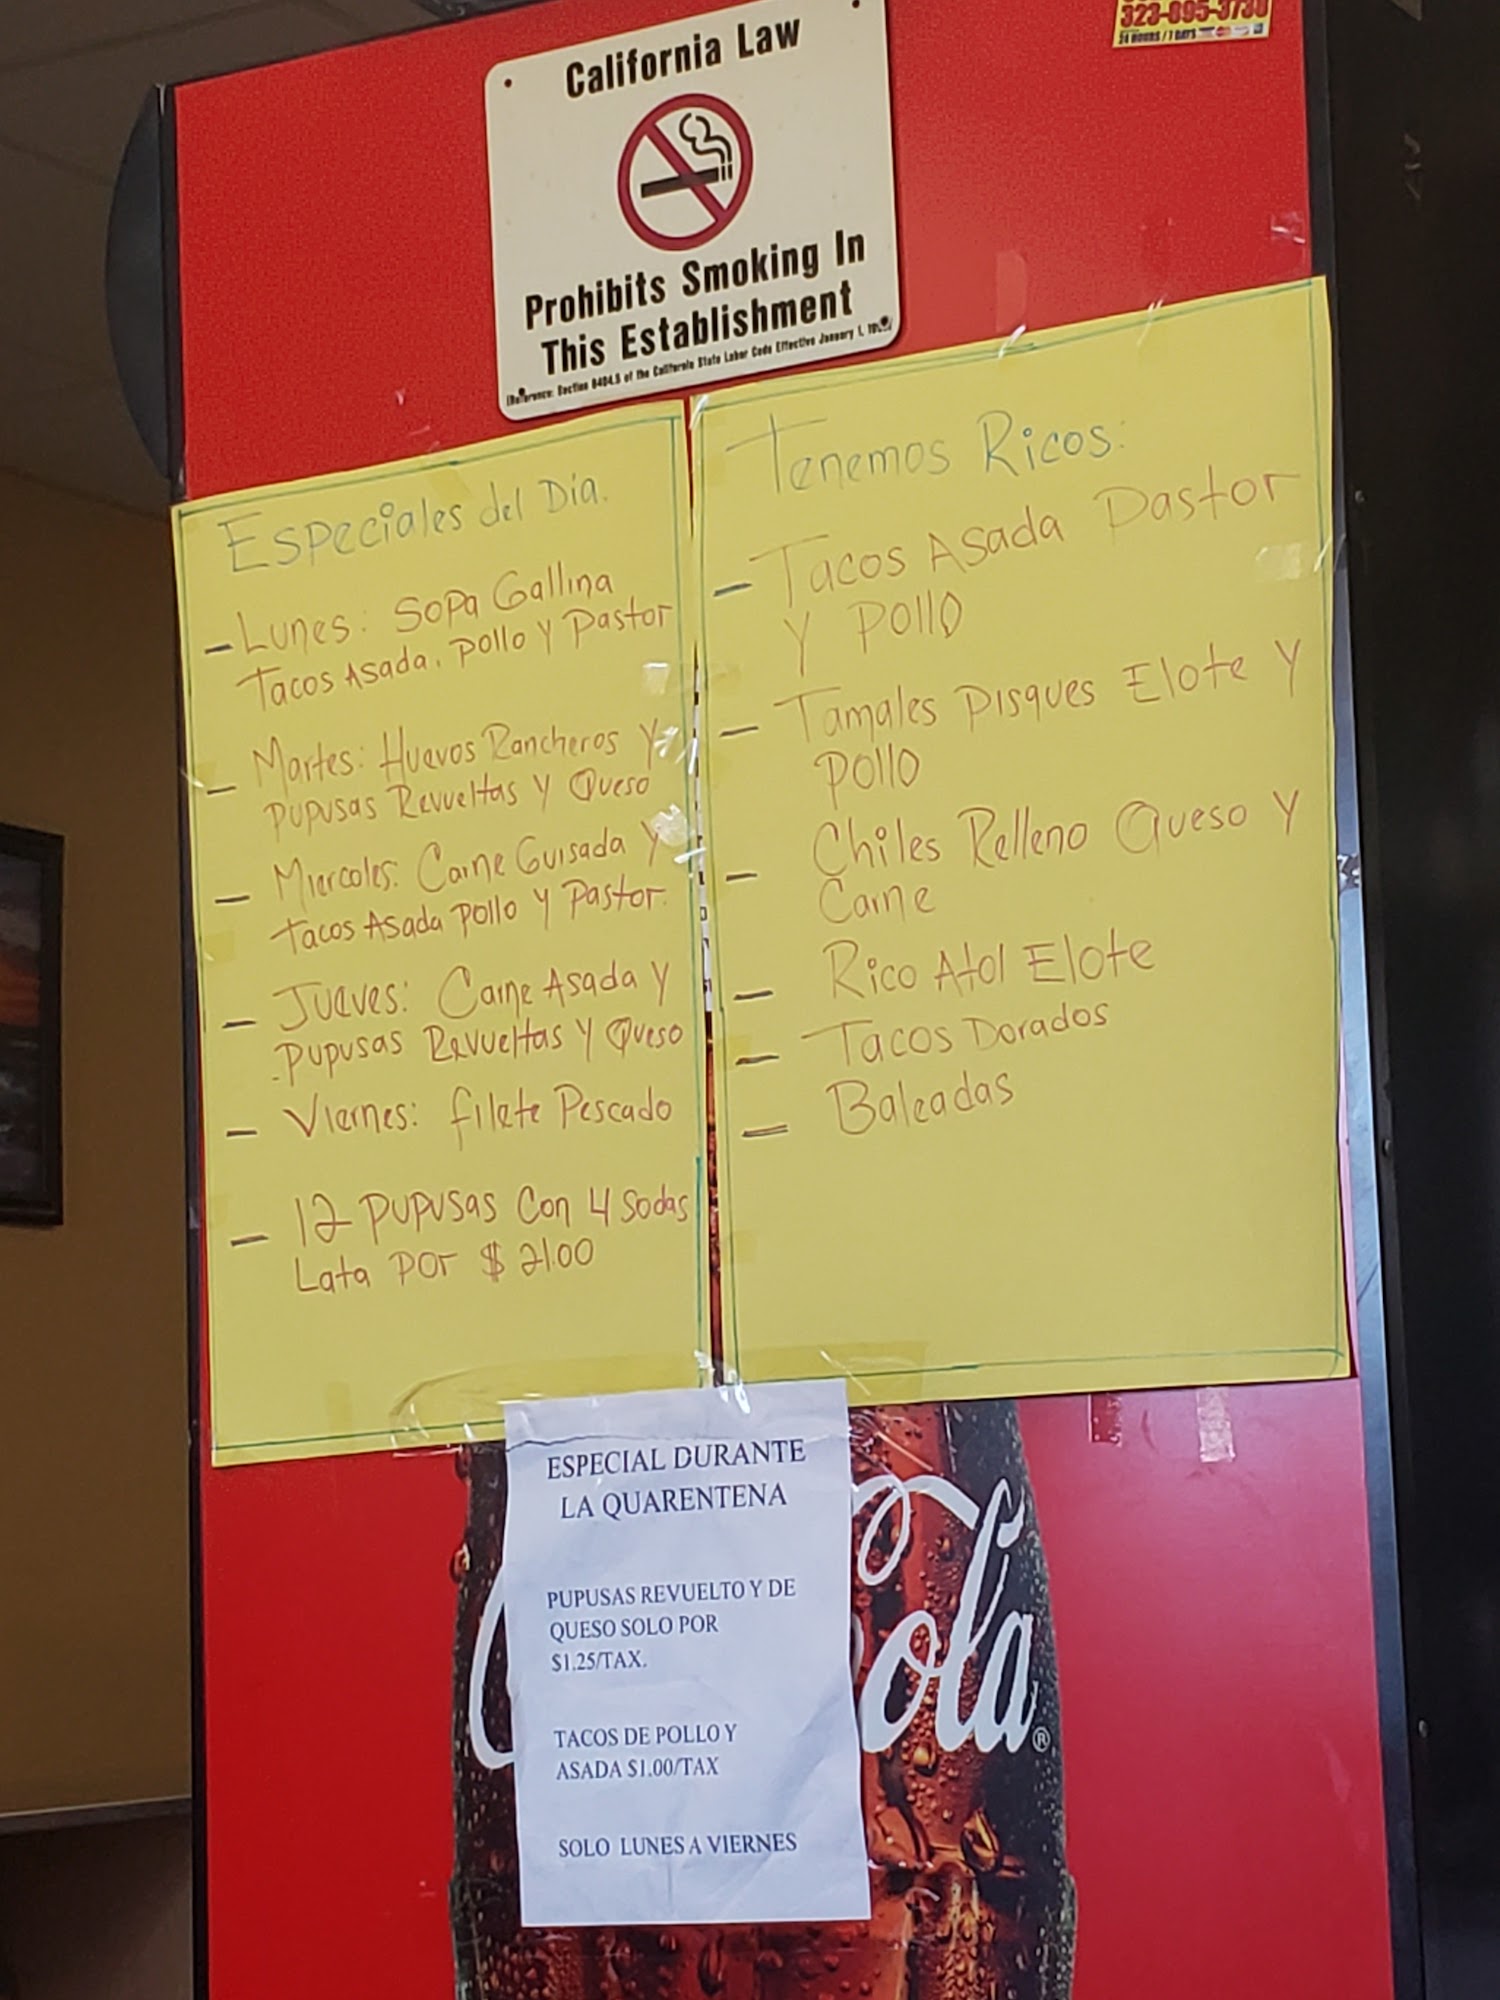 24 HOURS / 7 DAYS
California Law
Prohibits Smoking In
This Establishment
Section 6404.5 of the California State Labor Code Effective January 1,
Especiales del Día.
- Lunes: Sopa Gallina
Tacos Asada, Pollo y Pastor
- Martes: Huevos Rancheros y
Pupusas Revueltas y Queso
- Miercoles: Carne Guisada y
Tacos Asada Pollo y Pastor.
- Jueves: Carne Asada y
Pupusas Revueltas y Queso
- Viernes: filete Pescado
- 12 Pupusas Con 4 Sodas
Lata Por $ 21.00
Tenemos Ricos:
- Tacos Asada Pastor
Y Pollo
- Tamales Pisques Elote y
Pollo
- Chiles Relleno Queso y
Carne
- Rico Atol Elote
- Tacos Dorados
- Baleadas
ESPECIAL DURANTE
LA QUARENTENA
PUPUSAS REVUELTO Y DE
QUESO SOLO POR
$1.25/TAX.
TACOS DE POLLO Y
ASADA $1.00/TAX
SOLO LUNES A VIERNES
Cola®